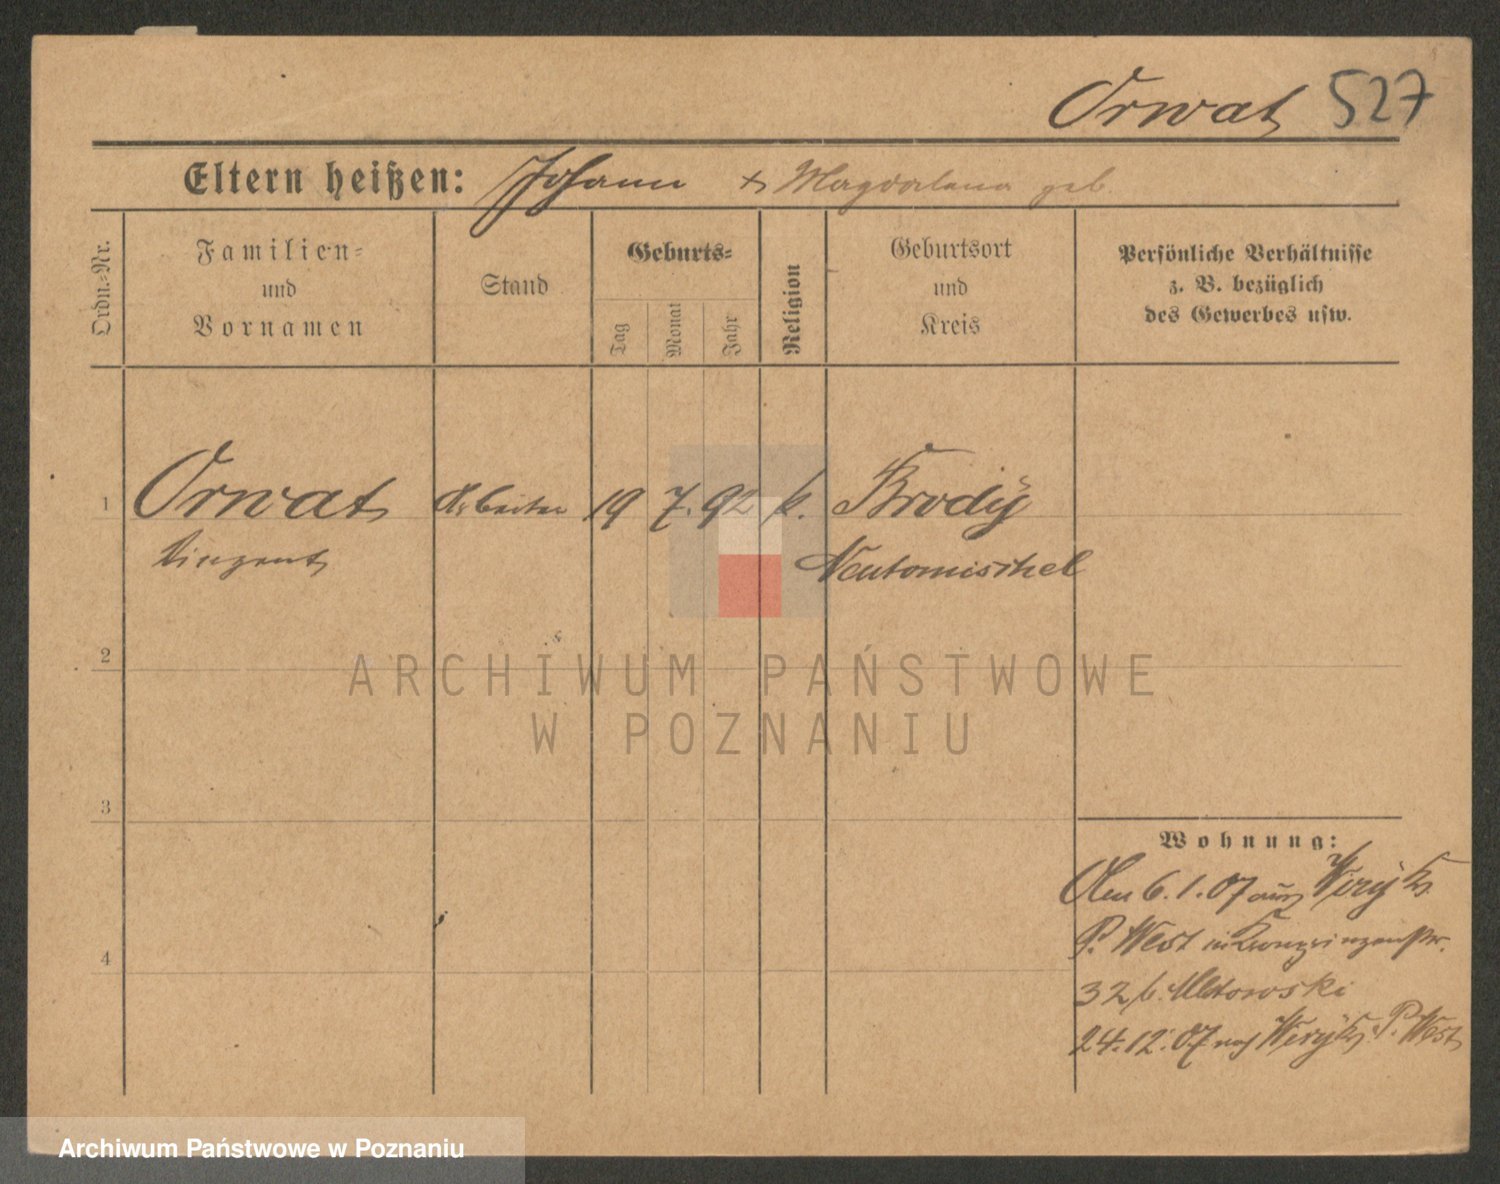 Orwat 527
Eltern heißen: Johann + Magdalena geb.
Ordn.=Nr.
Familien=
und
Vornamen
Stand
Geburts=
Tag
Monat
Jahr
Religion
Geburtsort
und
Kreis
Persönliche Verhältnisse
z. B. bezüglich
des Gewerbes usw.
1 Orwat Arbeiter 19 7. 92 k. Brody
Vinzent Neutomischel
2
ARCHIWUM PAŃSTWOWE
W POZNANIU
3
Wohnung:
Den 6.1.07 aus
P. West in Kronprinzenstr.
32 b.
4
24.12.07 nach P. West
Archiwum Państwowe w Poznaniu